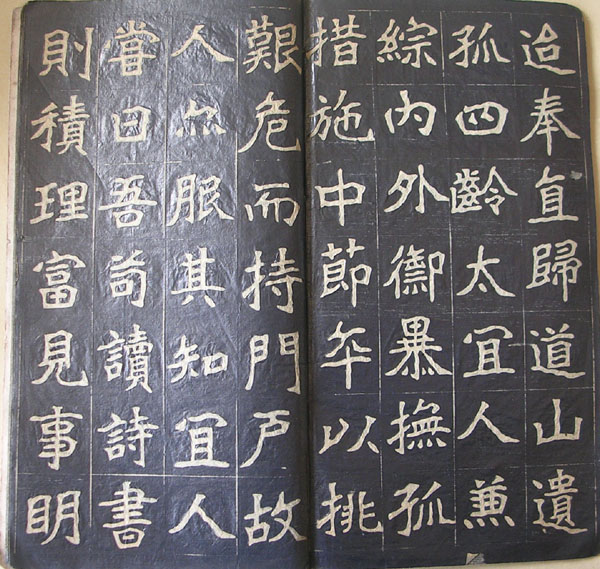 迨奉直歸道山遺
孤四齡太宜人兼
綜內外御暴撫孤
措施中節卒以拯
艱危而持門戶故
人亦服其知宜人
嘗曰吾苟讀詩書
則積理富見事明